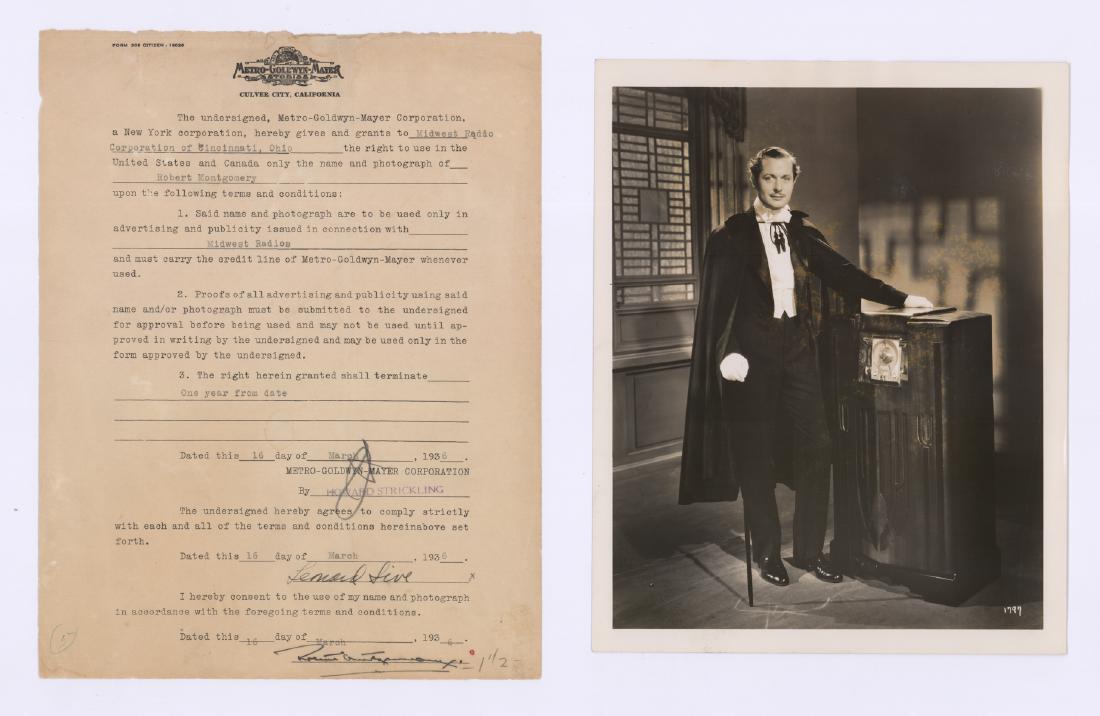 FORM 306 CITIZEN - 18026
METRO-GOLDWYN-MAYER
STUDIOS
CULVER CITY, CALIFORNIA
The undersigned, Metro-Goldwyn-Mayer Corporation,
a New York corporation, hereby gives and grants to Midwest Radio
Corporation of Cincinnati, Ohio the right to use in the
United States and Canada only the name and photograph of
Robert Montgomery
upon the following terms and conditions:
1. Said name and photograph are to be used only in
advertising and publicity issued in connection with
Midwest Radios
and must carry the credit line of Metro-Goldwyn-Mayer whenever
used.
2. Proofs of all advertising and publicity using said
name and/or photograph must be submitted to the undersigned
for approval before being used and may not be used until ap-
proved in writing by the undersigned and may be used only in the
form approved by the undersigned.
3. The right herein granted shall terminate
One year from date
Dated this 16 day of March, 1936.
METRO-GOLDWYN-MAYER CORPORATION
By HOWARD STRICKLING
The undersigned hereby agrees to comply strictly
with each and all of the terms and conditions hereinabove set
forth.
Dated this 16 day of March, 1936.
x
I hereby consent to the use of my name and photograph
in accordance with the foregoing terms and conditions.
Dated this 16 day of March, 1936.
Robert Montgomery
1797